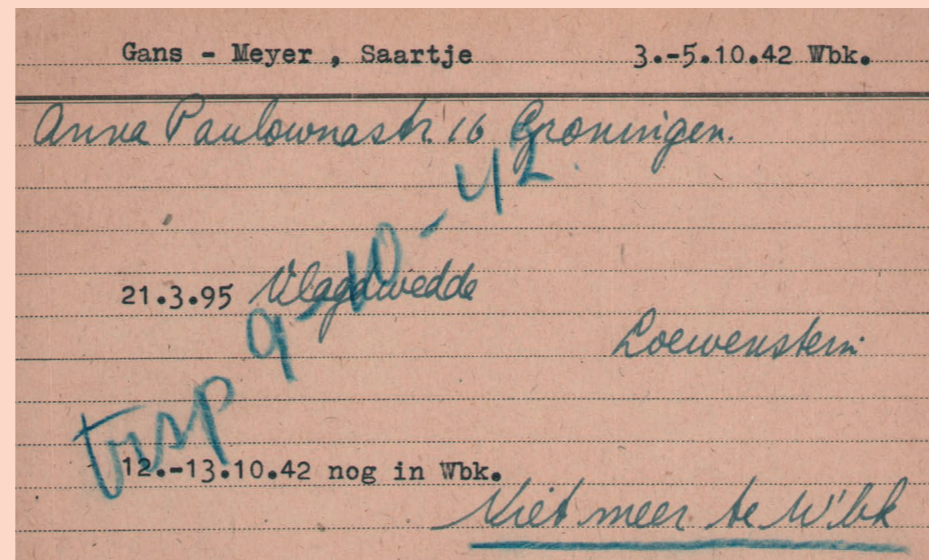 Gans - Meyer , Saartje 3.-5.10.42 Wbk.
Anna Paulownastr. 16 Groningen.
21.3.95 Vlagdwedde
Loewenstein
trsp 9-10-42.
12.-13.10.42 nog in Wbk.
Niet meer te W'bk